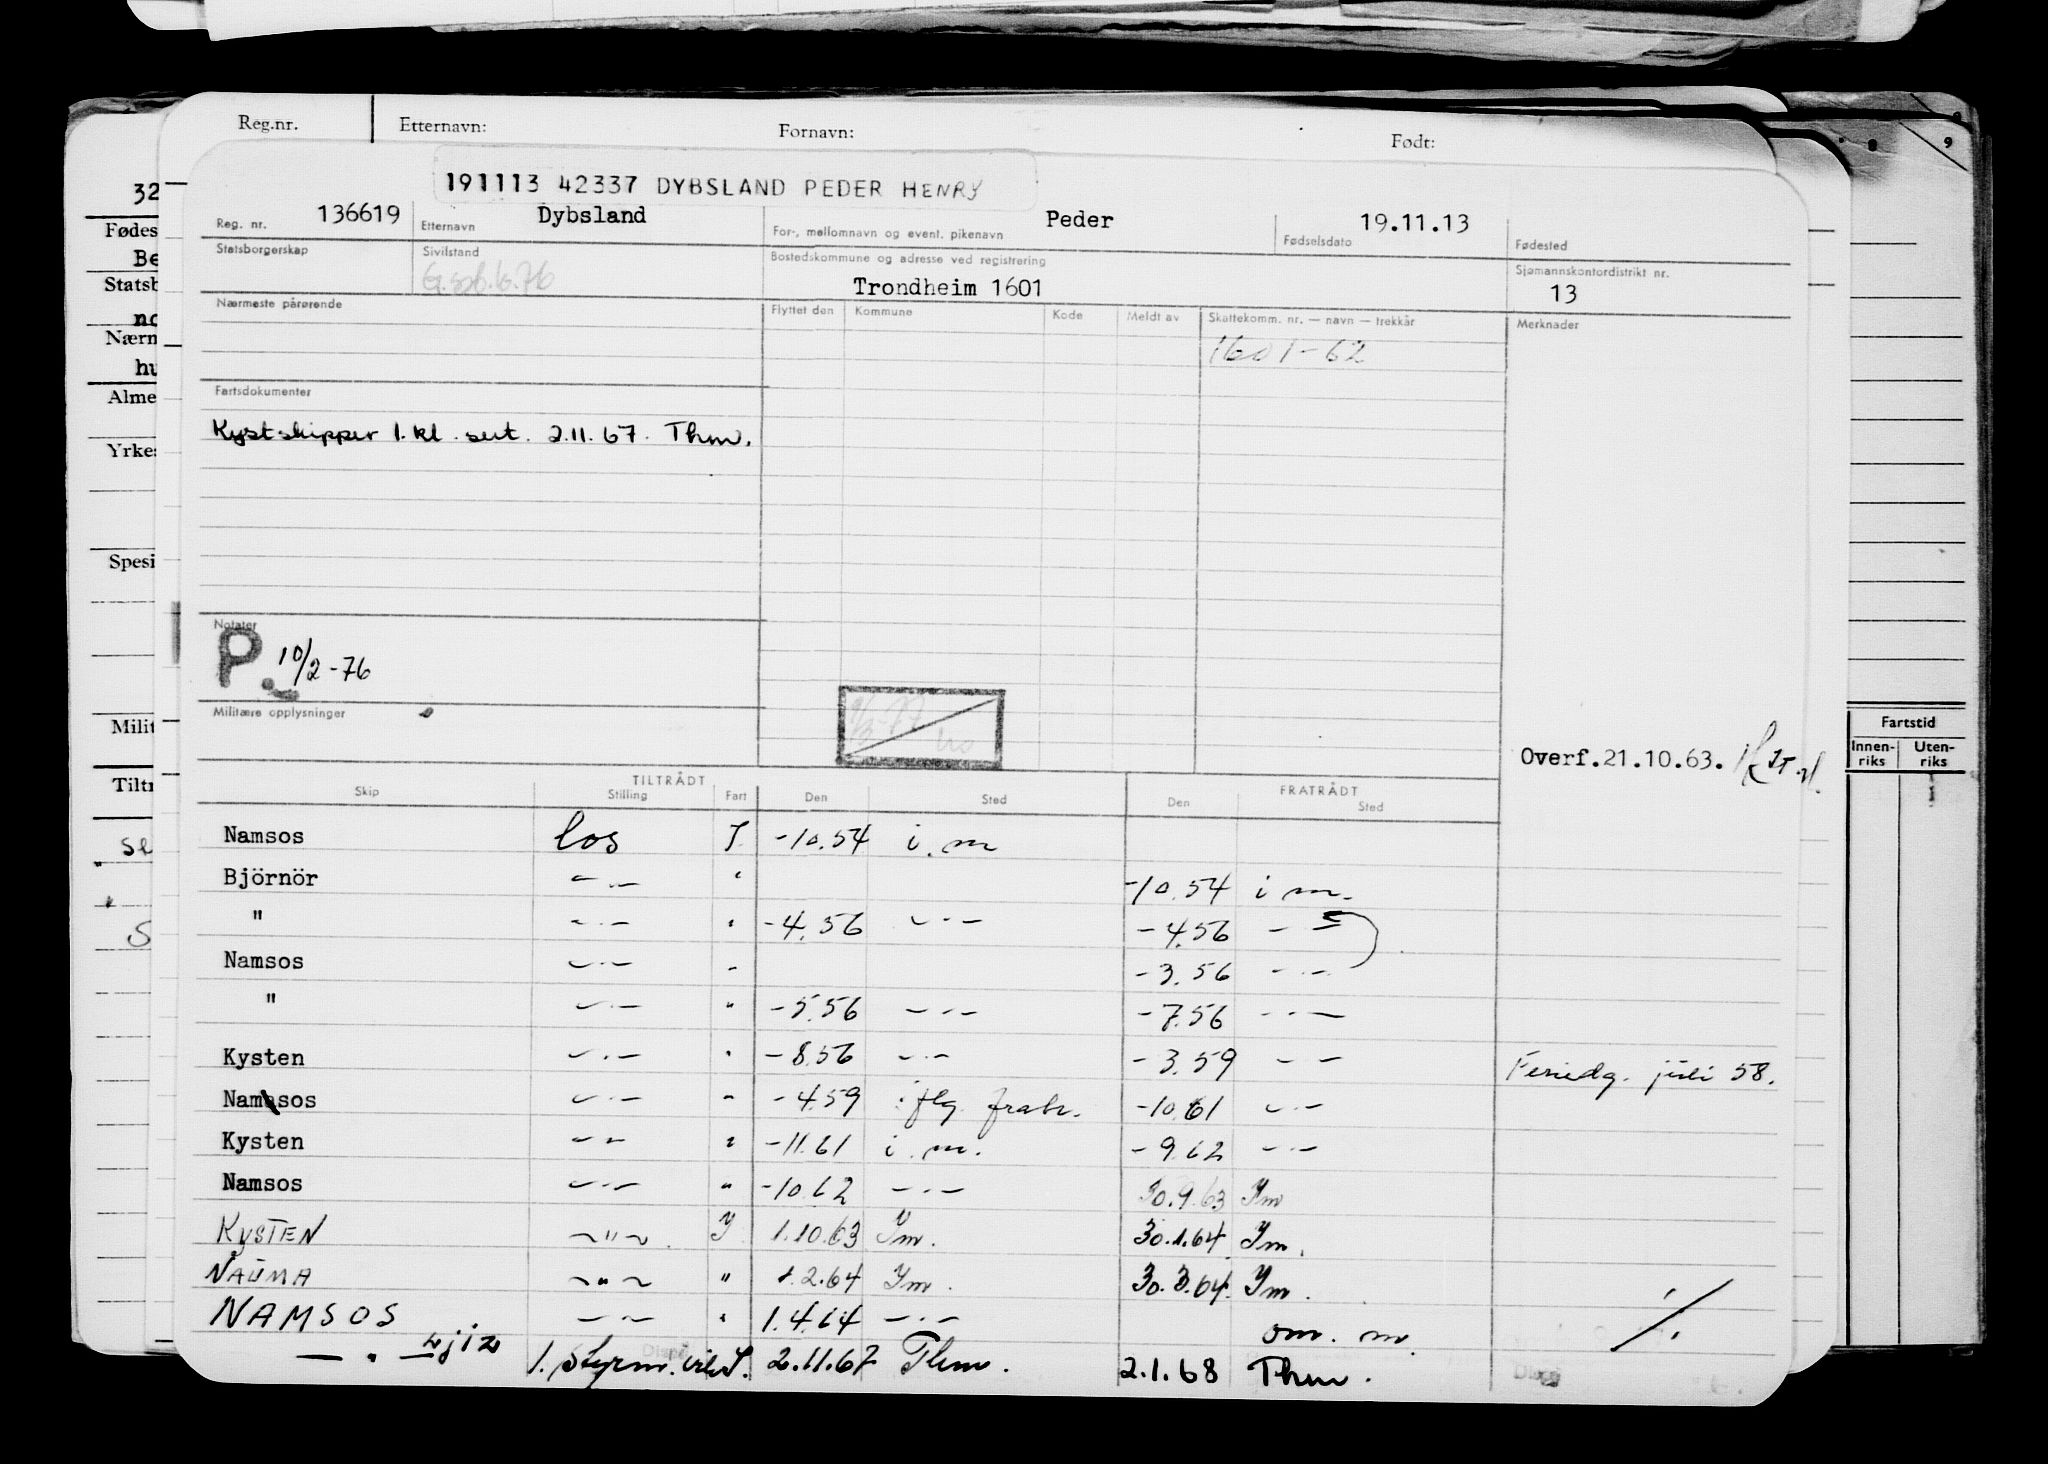 Reg.nr. Etternavn: Fornavn: Født:
191113 42337 DYBSLAND PEDER HENRY
Reg. nr. 136619 Etternavn Dybsland For-, mellomnavn og event. pikenavn Peder Fødselsdato 19.11.13 Fødested
Statsborgerskap Sivilstand Bostedskommune og adresse ved registrering Trondheim 1601 Sjømannskontordistrikt nr. 13
Nærmeste pårørende Flyttet den Kommune Kode Meldt av Skattekomm. nr. — navn — trekkår Merknader
1601-62
Fartsdokumenter
Kystskipper 1. kl. sert. 2.11.67. Thm.
Notater
P. 10/2-76
Militære opplysninger
Overf.21.10.63.
TILTRÅDT FRATRÅDT
Skip Stilling Fart Den Sted Den Sted
Namsos los I -10.54 i.m
Björnör —"— " -10.54 i m.
" —"— " -4.56 —"— -4.56 —"—
Namsos —"— " -3.56 —"—
" —"— " -5.56 —"— -7.56 —"—
Kysten —"— " -8.56 —"— -3.59 —"— Feriedg. juli 58.
Namsos —"— " -4.59 flg. -10.61 —"—
Kysten —"— " -11.61 i.m. -9.62 —"—
Namsos —"— " -10.62 —"— 30.9.63 Ym
KYSTEN —"— Y 1.10.63 Ym. 30.1.64 Ym.
NAUMA —"— " 1.2.64 Ym. 30.3.64. Ym.
NAMSOS —"— " 1.4.64 —"— om. m.
—"— 1. styrm. I. 2.11.67 Thm. 2.1.68 Thm.
32
Fødes
Be
Statsb
no
Nærn
hu
Alme
Yrkes
Spesi
Milit
Tiltr
se
S
9
Fartstid
Innenriks Utenriks
1